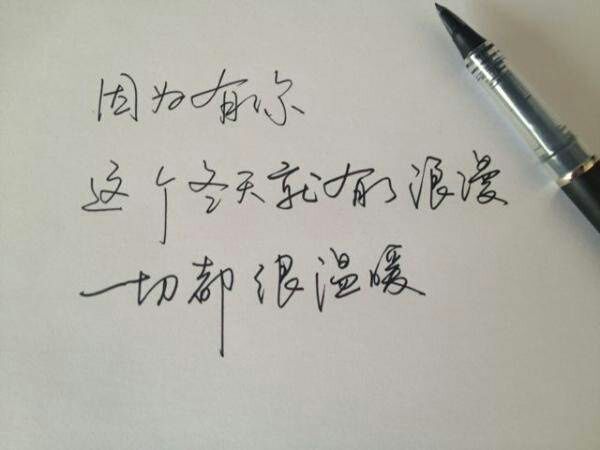 因为有你
这个冬天就有浪漫
一切都很温暖